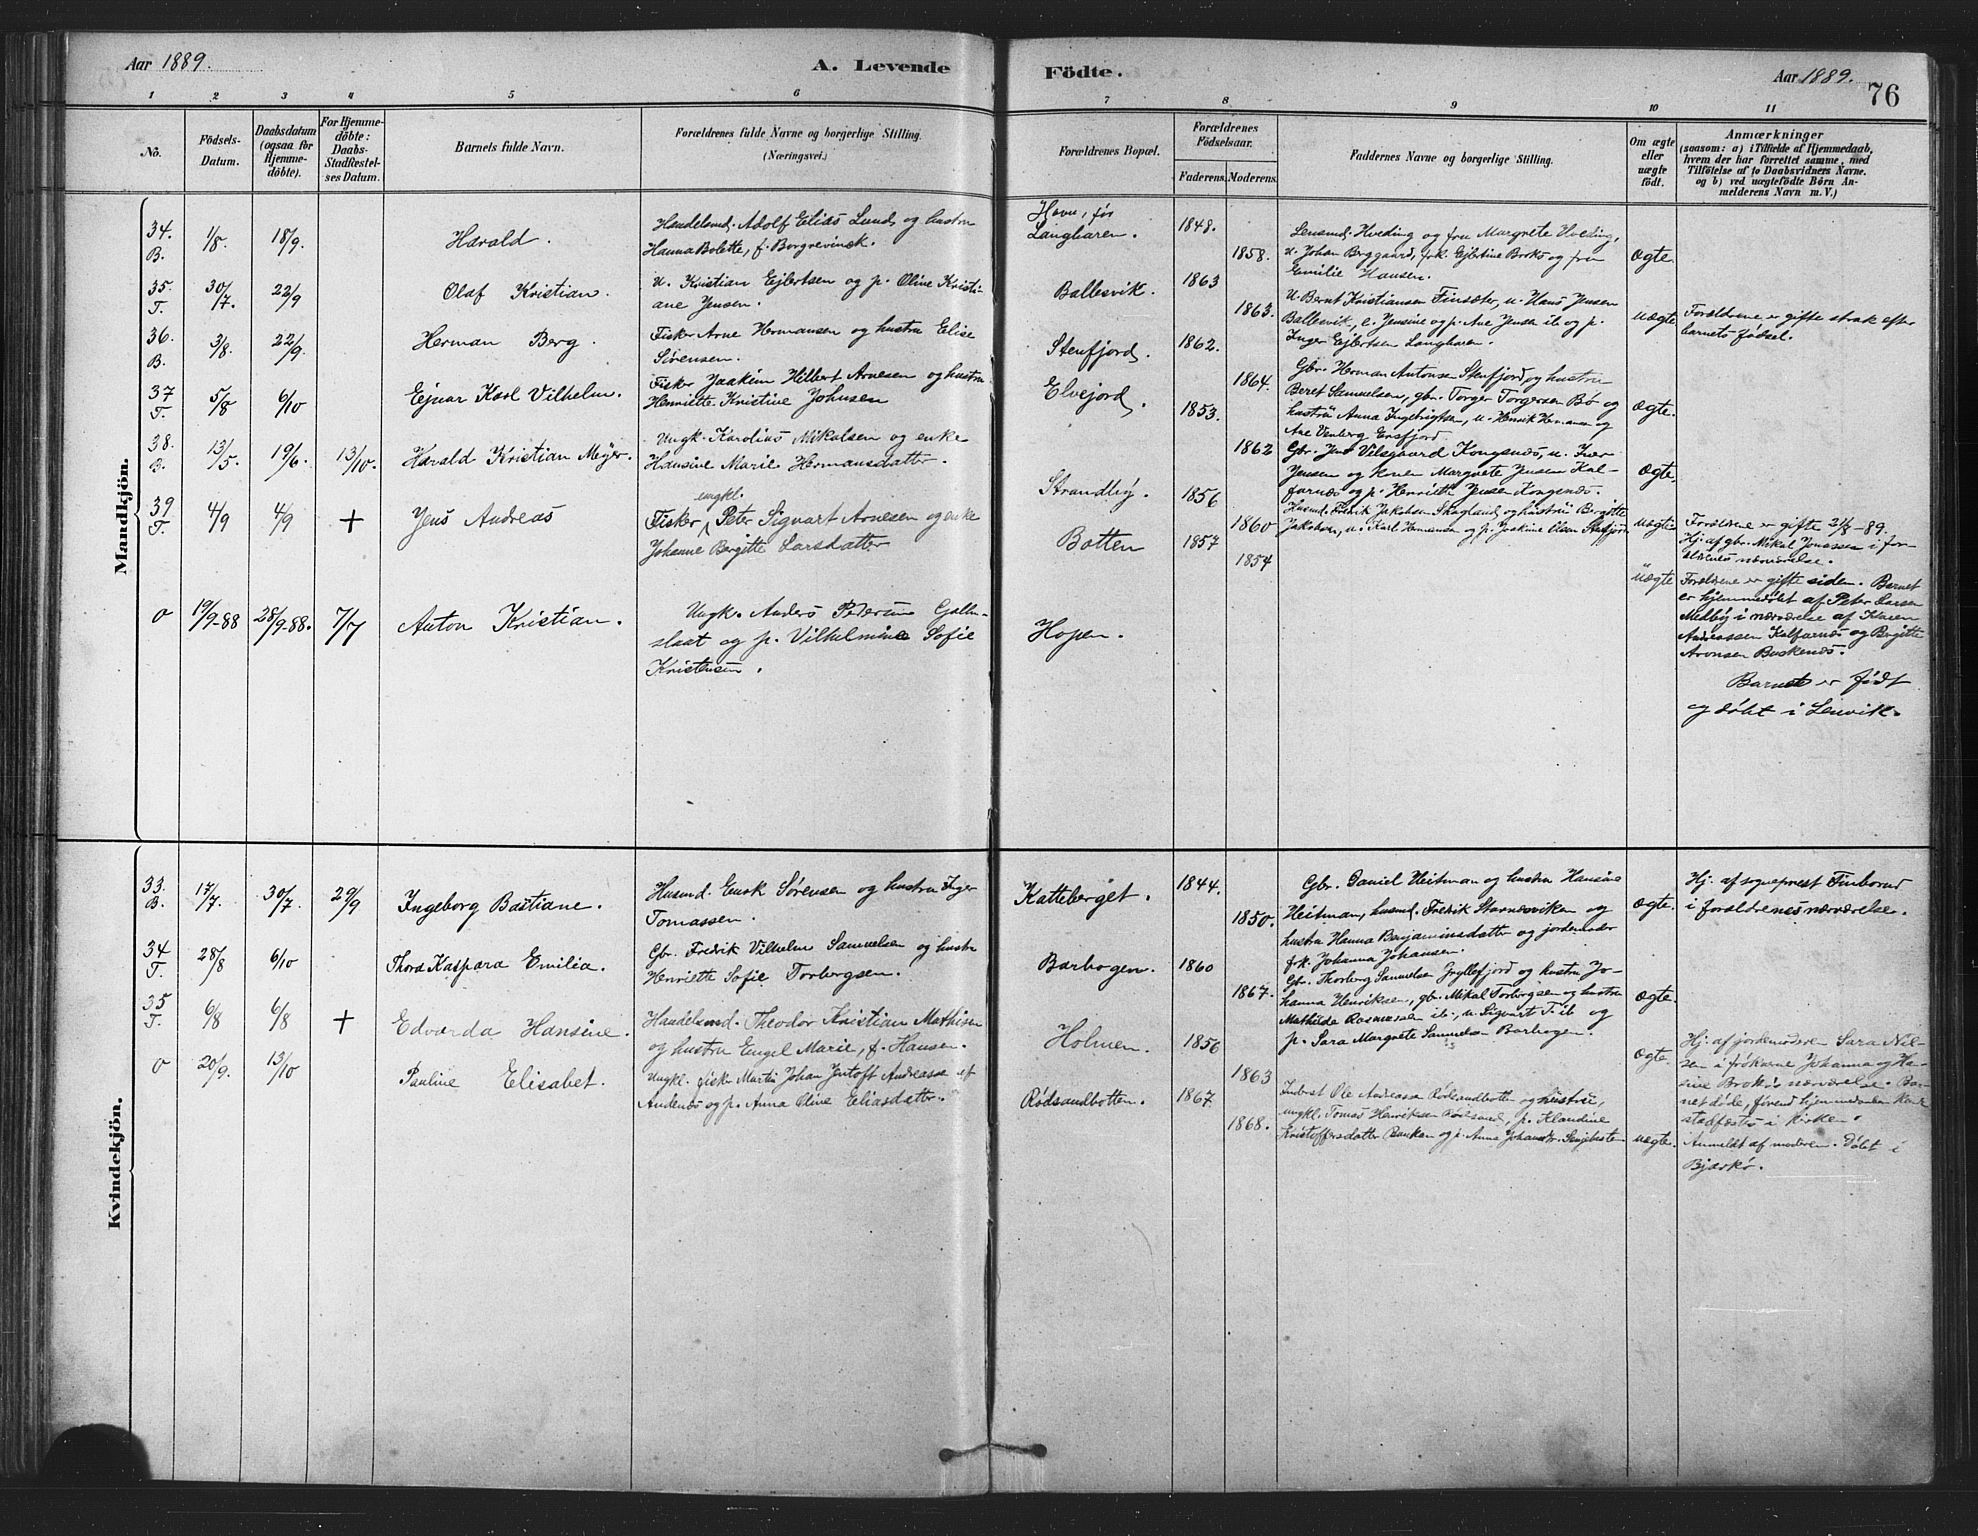 Aar 1889.
A. Levende
Födte.
Aar 1889.
76
1 2 3 4 5 6 7 8 9 10 11
No.
Födsels-
Datum.
Daabsdatum
(ogsaa for
Hjemme-
döbte).
For Hjemme-
döbte:
Daabs-
Stadfæstel-
ses Datum.
Barnets fulde Navn.
Forældrenes fulde Navne og borgerlige Stilling.
(Næringsvei.)
Forældrenes Bopæl.
Forældrenes
Födselsaar.
Faderens. Moderens.
Faddernes Navne og borgerlige Stilling.
Om ægte
eller
uægte
födt.
Anmærkninger
(saasom: a) i Tilfælde af Hjemmedaab,
hvem der har forrettet samme, med
Tilföielse af to Daabsvidners Navne.
og b) ved uægtefödte Börn An-
melderens Navn m. V.)
Mandkjön.
34.
B.
1/8.
18/9.
Harald.
Handelsmd. Adolf Elias Lund og hustru
Hanna Bolette, f. Borgrevinck.
Havn, før
Langharen.
1848.
1858.
Lensmd. Hveding og fru Margrete Hveding,
u. Johan Berggaard, frk. Ejbertine Broks og fru
Emilie Hansen.
ægte.
35.
T.
30/7.
22/9
Olaf Kristian.
U. Kristian Ejbertsen og p. Oline Kristi-
ane Jensen.
Ballesvik.
1863
1863.
U. Bernt Kristiansen Finsæter, u. Hans Jensen
Ballesvik, e. Jensine og p. Ane Jensen ib og p.
Inger Ejbertsen Langharen.
uægte
Forældrene er gifte strak efter
barnets fødsel.
36.
B.
3/8.
22/9.
Herman Berg.
Fisker Arne Hermansen og hustru Elise
Sørensen.
Stenfjord.
1862.
1864.
Gbr. Herman Antonsen Stenfjord og hustru
Beret Samuelsen, gbr. Torger Torgersen Bø og
hustru Anna Ingebrigtsen, u. Henrik Hermansen og
Ane Venberg Ersfjord.
ægte.
37
T.
5/8
6/10
Ejnar Karl Vilhelm.
Fisker Joakim Hilbert Arnesen og hustru
Henriette Kristine Johnsen
Elvejord.
1853.
1862
Gbr. Jens Vilsgaard Kongsnes, u. Iver
Jensen og kone Margrete Jensen Kal-
farnes og p. Henriette Jensen Kongsnes.
ægte.
38.
B.
13/5.
19/6.
13/10.
Harald Kristian Meyer.
Ungk. Karolius Mikalsen og enke
Hansine Marie Hermansdatter.
Strandby.
1856
1860
Husmd. Fredrik Jakobsen Skagland og hustru Birgitte
Jakobsen, u. Karl Hermansen og p. Joakine Olsen Stenfjord
uægte
Forældrene er gifte 21/8-89.
39
T.
4/9
4/9
+
Jens Andreas
ungkl.
Fisker Peter Sigvart Arnesen og enke
Johanne Bergitte Larsdatter
Botten
1857
1854
uægte
Hj. af gbr. Mikal Jonassen i for-
ældrenes nærværelse.
0
19/9-88
28/9-88.
7/7
Anton Kristian.
Ungk. Anders Pedersen
og p. Vilhelmine Sofie
Kristensen.
Hopen.
Forældrene er gifte siden. Barnet
er hjemmedøbt af Peter Larsen
Medby i nærværelse af
Andreassen Kalfarnes og Birgitte
Aronsen Buskenes.
Barnet er født
og døbt i Lenvik.
Kvindekjön.
33.
B.
17/7.
30/7.
29/9
Ingeborg Bastiane.
Husmd. Enok Sørensen og hustru Inger
Tomassen.
Katteberget.
1844.
1850.
Gbr. Daniel Heitman og hustru Hansine
Heitman, husmd. Fredrik Starnesviken og
hustru Hanna Benjaminsdatter og jordemoder
frk. Johanna Johansen.
ægte.
Hj. af sogneprest Finborud
i forældrenes nærværelse.
34
T.
28/8
6/10
Thora Kaspara Emilia.
Gbr. Fredrik Vilhelm Samuelsen og hustru
Henriette Sofie Torbergsen.
Barhogen.
1860
1867.
Gbr. Thorberg Samuelsen Gryllefjord og hustru Jo-
hanna Henriksen, gbr. Mikal Torbergsen og hustru
Mathilde Rasmussen ib., u. Sigvart T. ib og
p. Sara Margrete Samuelsen Barhogen.
ægte.
35
T.
6/8
6/8
+
Edvarda Hansine.
Handelsmd. Theodor Kristian Mathisen
og hustru Engel Marie, f. Hansen.
Holmen.
1856
1863
ægte.
Hj. af jordemoderen Sara Nil-
sen i frøknerne Johanna og Ha-
nsine Broks nærværelse. Bar-
net døde, førend hjemmedaaben kunde
stadfæstes i kirken.
0
20/9.
13/10
Pauline Elisabet.
Ungkl. fisker Martin Johan Jentoft Andreassen af
Andenes og p. Anna Oline Eliasdatter.
Rødsandbotten.
1867.
1868.
Inderst Ole Andreassen Rødsandbotten og hustru,
ungkl. Tomas Henriksen Rødsand, p. Klaudine
Kristoffersdatter Banken og p. Anna Johansdtr. Senjehesten
uægte.
Anmeldt af moderen. Døbt i
Bjarkø.